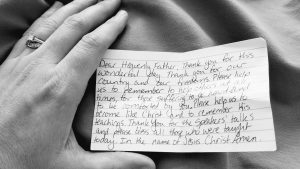 Dear Heavenly Father, Thank you for this
wonderful day. Thank you for our
country and our leaders. Please help
us to remember to
for those suffering
to be comforted by you. Please help us to
become like Christ and to remember his
teachings. Thank you for the speakers' talks
and please bless all those who were taught
today. In the name of Jesus Christ Amen.